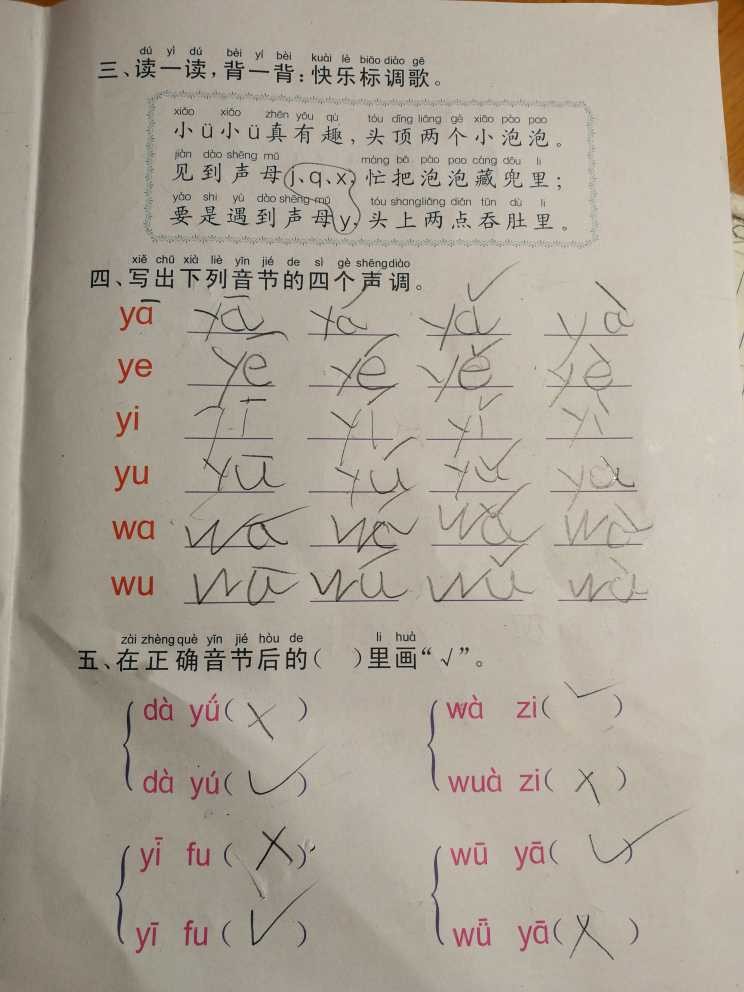 dú yì dú bèi yí bèi kuài lè biāo diào gē
三、读一读，背一背：快乐标调歌。
xiǎo xiǎo zhēn yǒu qù tóu dǐng liǎng gè xiǎo pào pao
小ü小ü真有趣，头顶两个小泡泡。
jiàn dào shēng mǔ máng bǎ pào pao cáng dōu li
见到声母j、q、x，忙把泡泡藏兜里；
yào shi yù dào shēng mǔ tóu shang liǎng diǎn tūn dù li
要是遇到声母y，头上两点吞肚里。
xiě chū xià liè yīn jié de sì gè shēng diào
四、写出下列音节的四个声调。
ya yā yá yǎ yà
ye yē yé yě yè
yi yī yí yǐ yì
yu yū yú yǔ yù
wa wā wá wǎ wà
wu wū wú wǔ wù
zài zhèng què yīn jié hòu de li huà
五、在正确音节后的（ ）里画“√”。
dà yǘ（×） wà zi（√）
dà yú（√） wuà zi（×）
yī̇ fu（×） wū yā（√）
yī fu（√） wǖ yā（×）